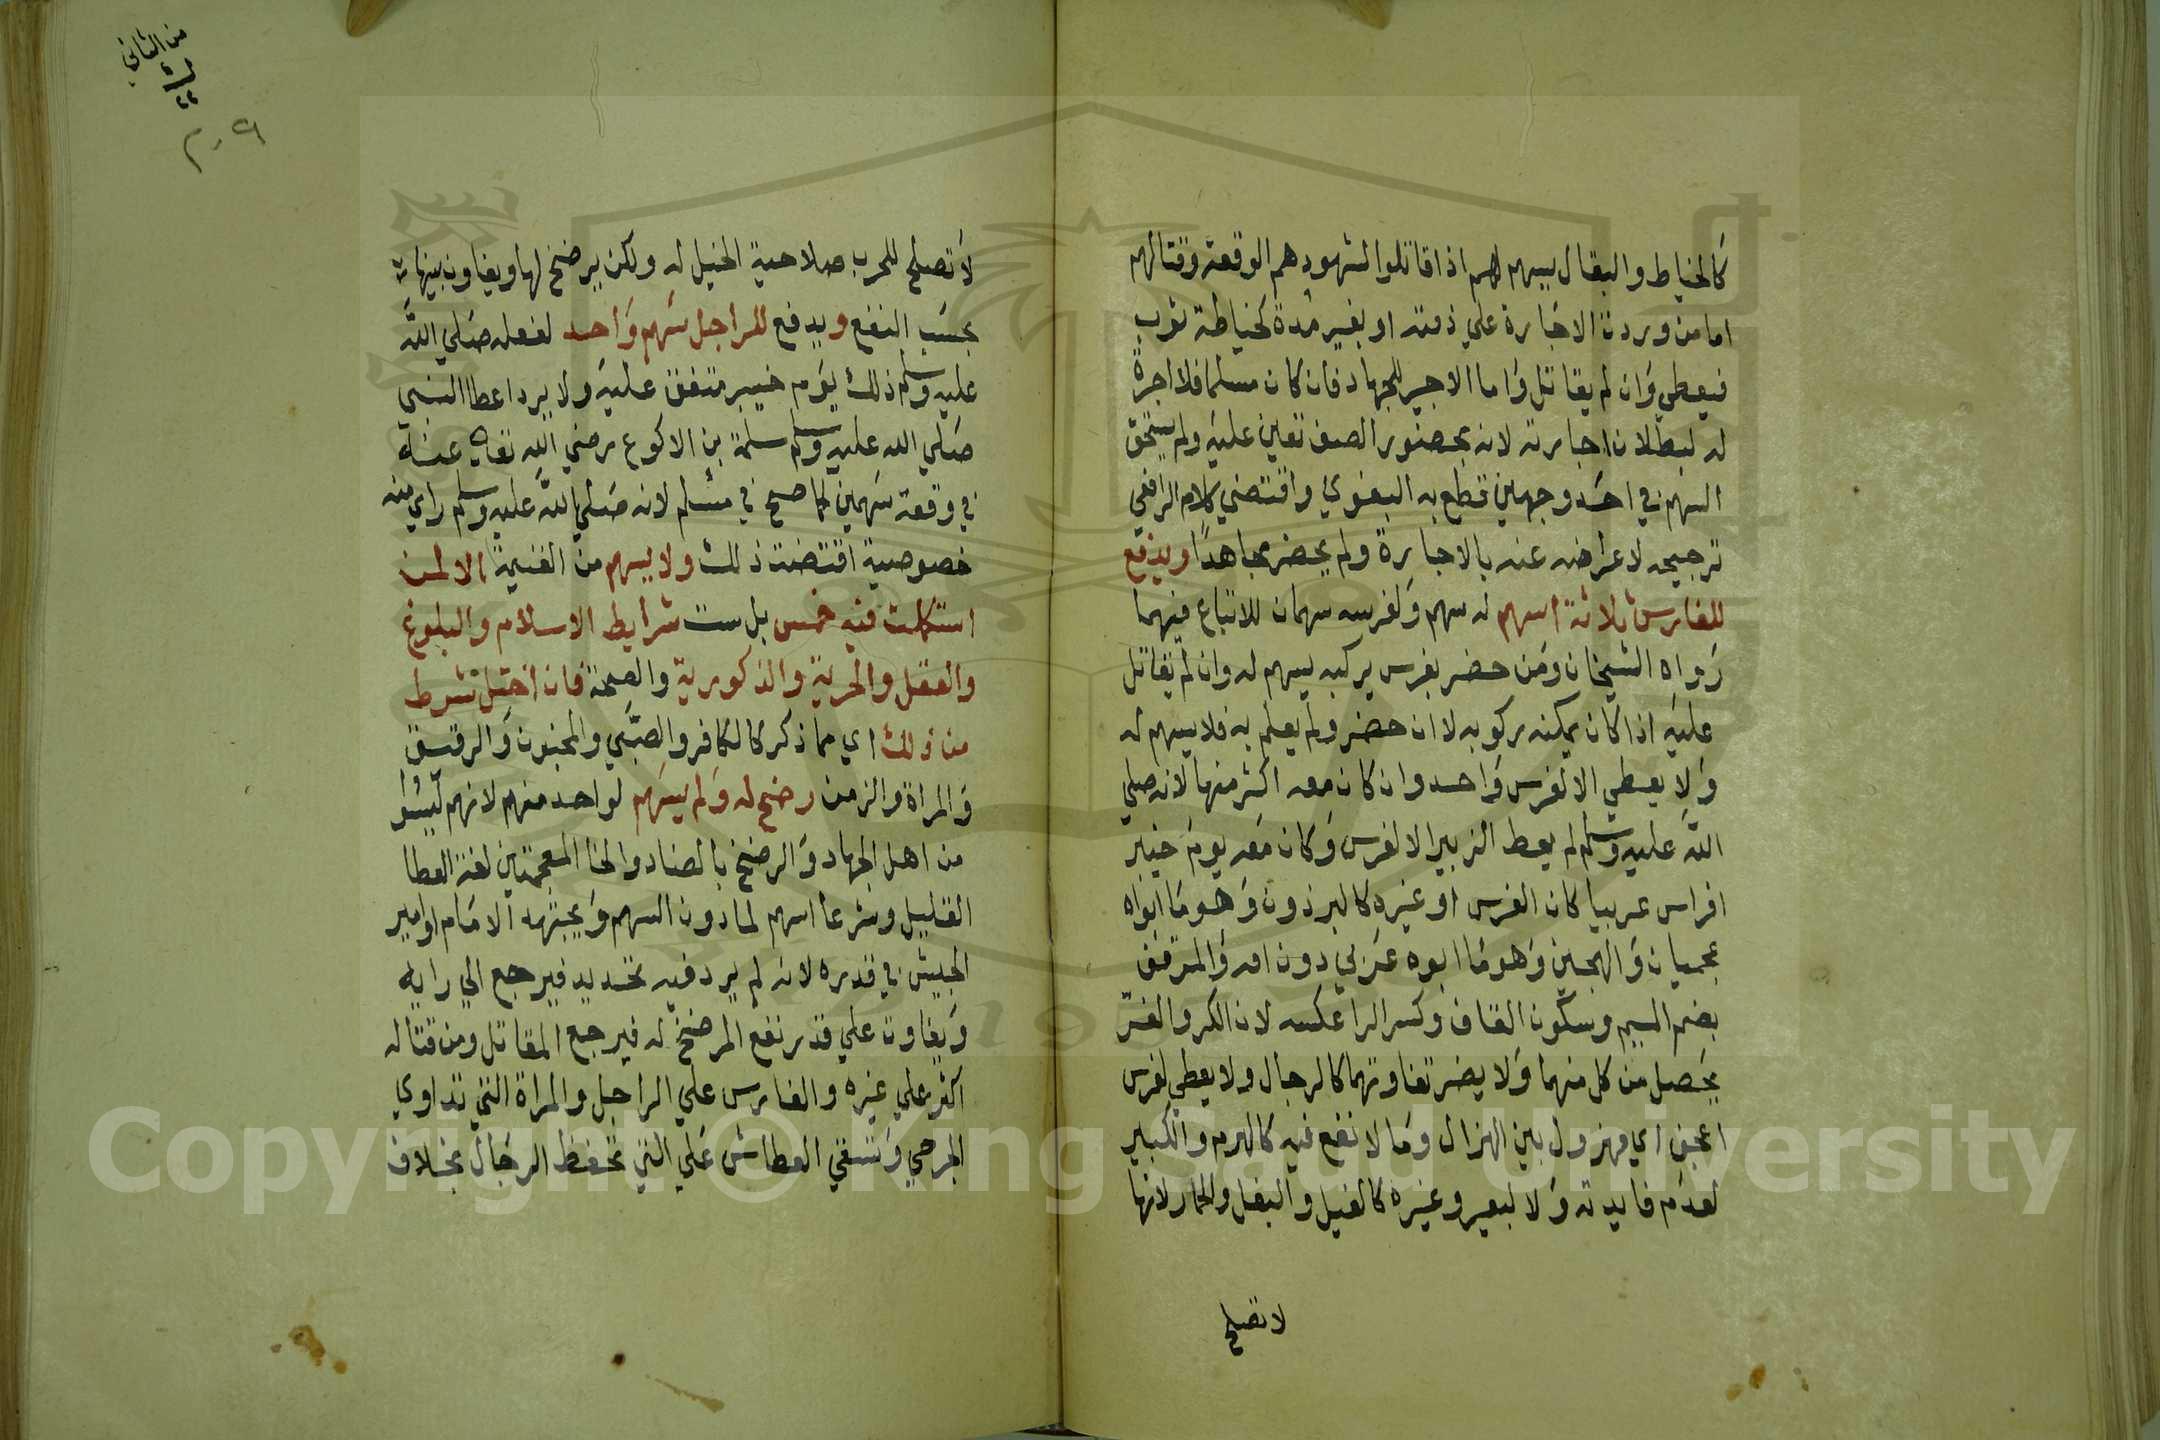 كالخياط والبقال يسهم لهم اذا قاتلوا لشهودهم الوقعة وقتالهم
اما من وردت الاجارة علي ذمته او بغير مدة كخياطة ثوب
فيعطي وان لم يقاتل واما الاجير للجهاد فان كان مسلما فلا اجرة
له لبطلان اجارته لانه بحضور الصف تعين عليه ولم يستحق
السهم في احد وجهين قطع به البغوي واقتضي كلام الرافعي
ترجيحه لاعراضه عنه بالاجارة ولم يحضر مجاهدا ويدفع
للفارس ثلاثة اسهم له سهم ولفرسه سهمان للاتباع فيهما
رواه الشيخان ومن حضر بفرس يركبه يسهم له وان لم يقاتل
عليه اذا كان يمكنه ركوبه لا ان حضر ولم يعلم به فلا يسهم له
ولا يعطي الا لفرس واحد وان كان معه اكثر منها لانه صلي
الله عليه وسلم لم يعط الزبير الا لفرس وكان معه يوم خيبر
افراس عربيا كان الفرس او غيره كالبرذون وهو ما ابواه
عجميان والهجين وهو ما ابوه عربي دون امه والمقرف
بضم الميم وسكون القاف وكسر الرا عكسه لان الكر والفر
يحصل من كل منهما ولا يضر تفاوتهما كالرجال ولا يعطي لفرس
اعجف اي مهزول بين الهزال وما لا نفع فيه كالهرم والكبير
لعدم فايدته ولا لبعير وغيره كالفيل والبغل والحمار لانها
لا تصلح
من الثاني
٢٠٩
لا تصلح للحرب صلاحية الخيل له ولكن يرضخ لها ويفاوت بينهما
بحسب النفع ويدفع للراجل سهم واحد لفعله صلي الله
عليه وسلم ذلك يوم خيبر متفق عليه ولا يرد اعطا النبي
صلي الله عليه وسلم سلمة بن الاكوع رضي الله تعالي عنه
في وقعة سهمين كما صح في مسلم لانه صلي الله عليه وسلم راي منه
خصوصية اقتضت ذلك ولا يسهم من الغنيمة الا لمن
استكملت فيه خمس بل ست شرايط الاسلام والبلوغ
والعقل والحرية والذكورية والصحة فان اختل شرط
من ذلك اي مما ذكر كالكافر والصبي والمجنون والرقيق
والمراة والزمن رضخ له ولم يسهم لواحد منهم لانهم ليسوا
من اهل الجهاد والرضخ بالضاد والخا المعجمتين لغة العطا
القليل وشرعا اسهم لما دون السهم ويجتهد الامام او امير
الجيش في قدره لانه لم يرد فيه تحديد فيرجع الي رايه
ويفاوت علي قدر نفع المرضخ له فيرجع المقاتل ومن قتاله
اكثر علي غيره والفارس علي الراجل والمراة التي تداوي
الجرحي وتسقي العطاش علي التي تحفظ الرحال بخلاف
Copyright © King Saud University